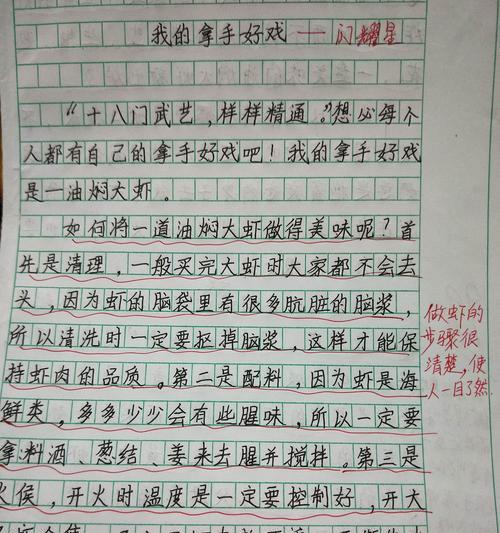 我的拿手好戏——闪耀星
“十八门武艺，样样精通。”想必每个
人都有自己的拿手好戏吧！我的拿手好戏
是一油焖大虾。
如何将一道油焖大虾做得美味呢？首
先是清理，一般买完大虾时大家都不会去
头，因为虾的脑袋里有很多肮脏的脑浆，
所以清洗时一定要抠掉脑浆，这样才能保
持虾肉的品质。第二是配料，因为虾是海
鲜类，多多少少会有些腥味，所以一定要
拿料酒、葱结、姜来去腥并搅拌。第三是
火候，开火时温度是一定要控制好，开大
做虾的
步骤很
清楚，使
人一目了然